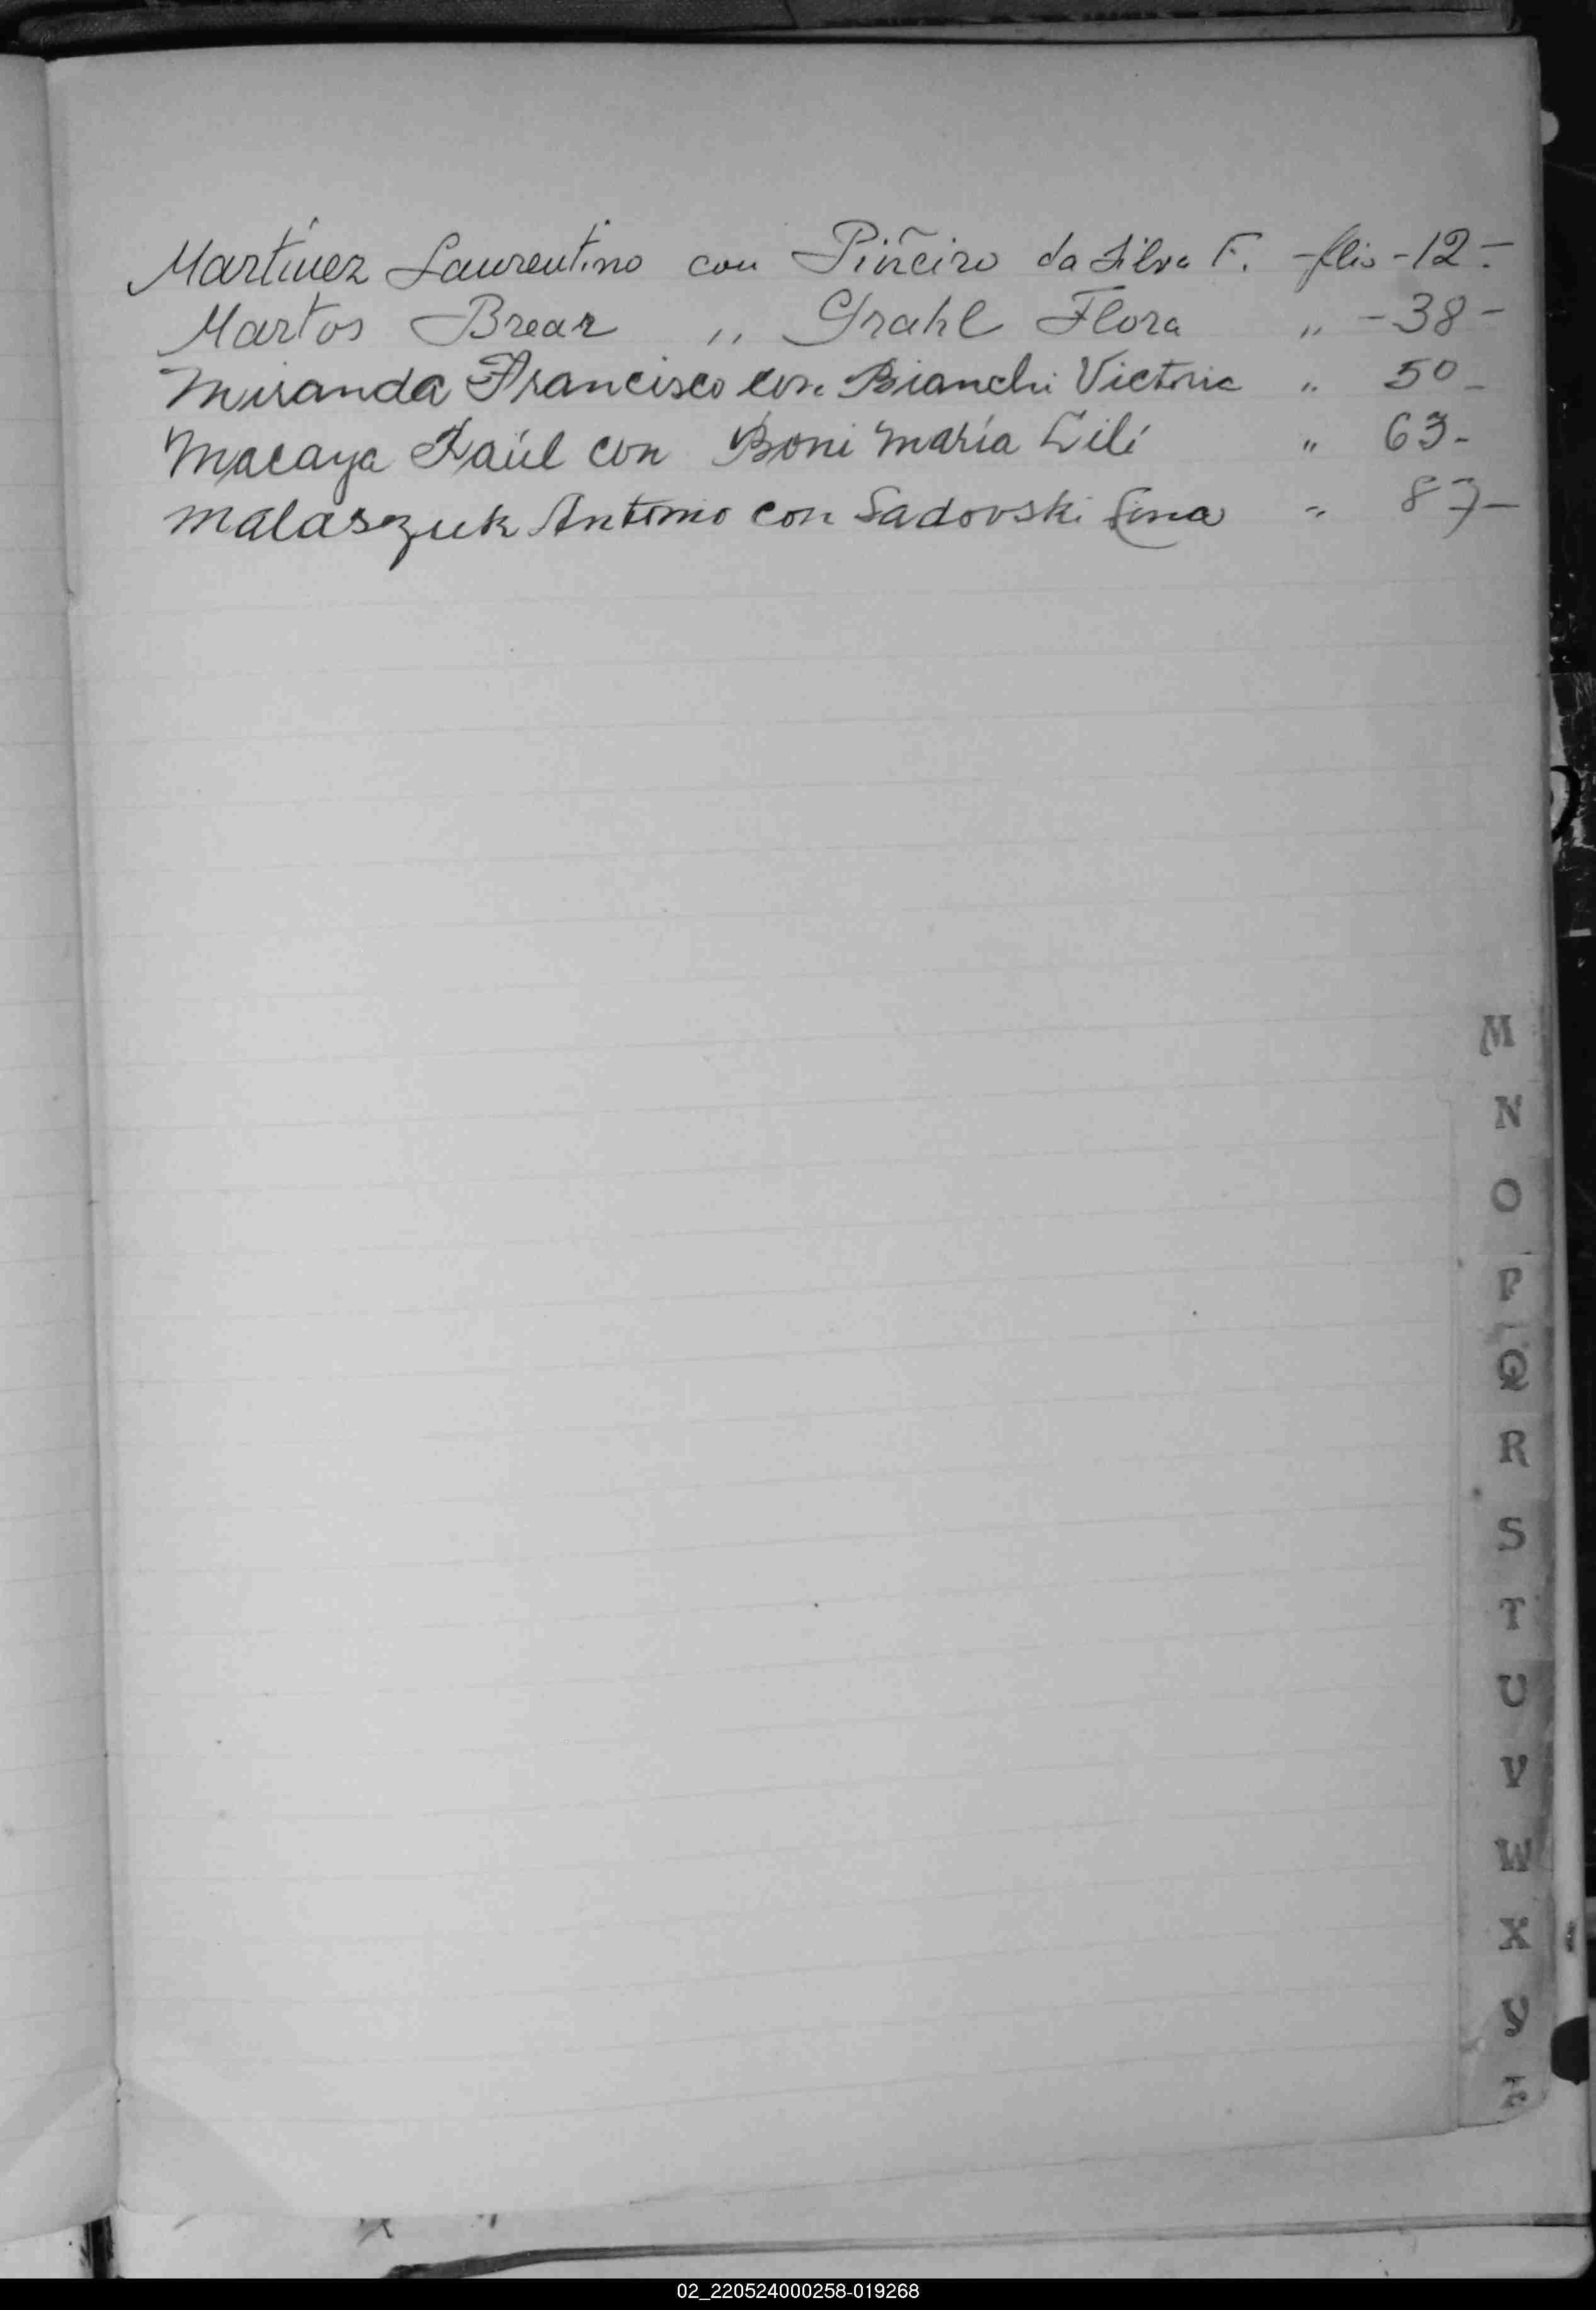 Martínez Laurentino con Piñeiro da Silva F. -flio -12.-
Martos Brear " Grahl Flora " -38-
Miranda Francisco con Bianchi Victoria " 50-
Macaya Raúl con Boni María Lilí " 63-
Malaszuk Antonio con Sadovski Lina " 87-
M
N
O
P
Q
R
S
T
U
V
W
X
Y
Z
02_220524000258-019268